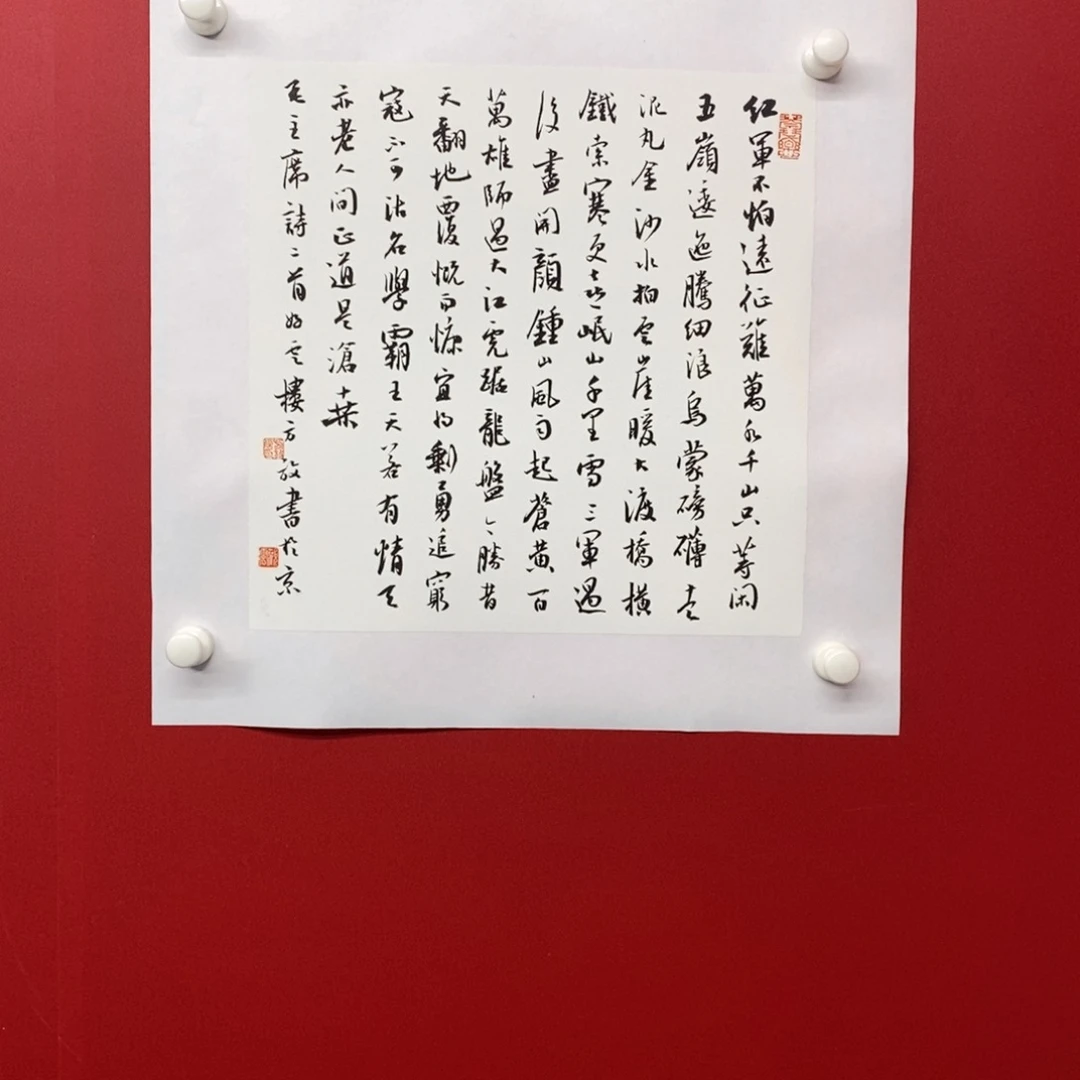 紅軍不怕遠征難萬水千山只等闲
五嶺逶迤騰細浪烏蒙磅礴走
泥丸金沙水拍雲崖暖大渡橋橫
鐵索寒更喜岷山千里雪三軍過
後盡開顏鍾山風雨起蒼黃百
萬雄師過大江虎踞龍盤今勝昔
天翻地覆慨而慷宜將剩勇追窮
寇不可沽名學霸王天若有情天
亦老人间正道是滄桑
毛主席詩二首樓方放書於京